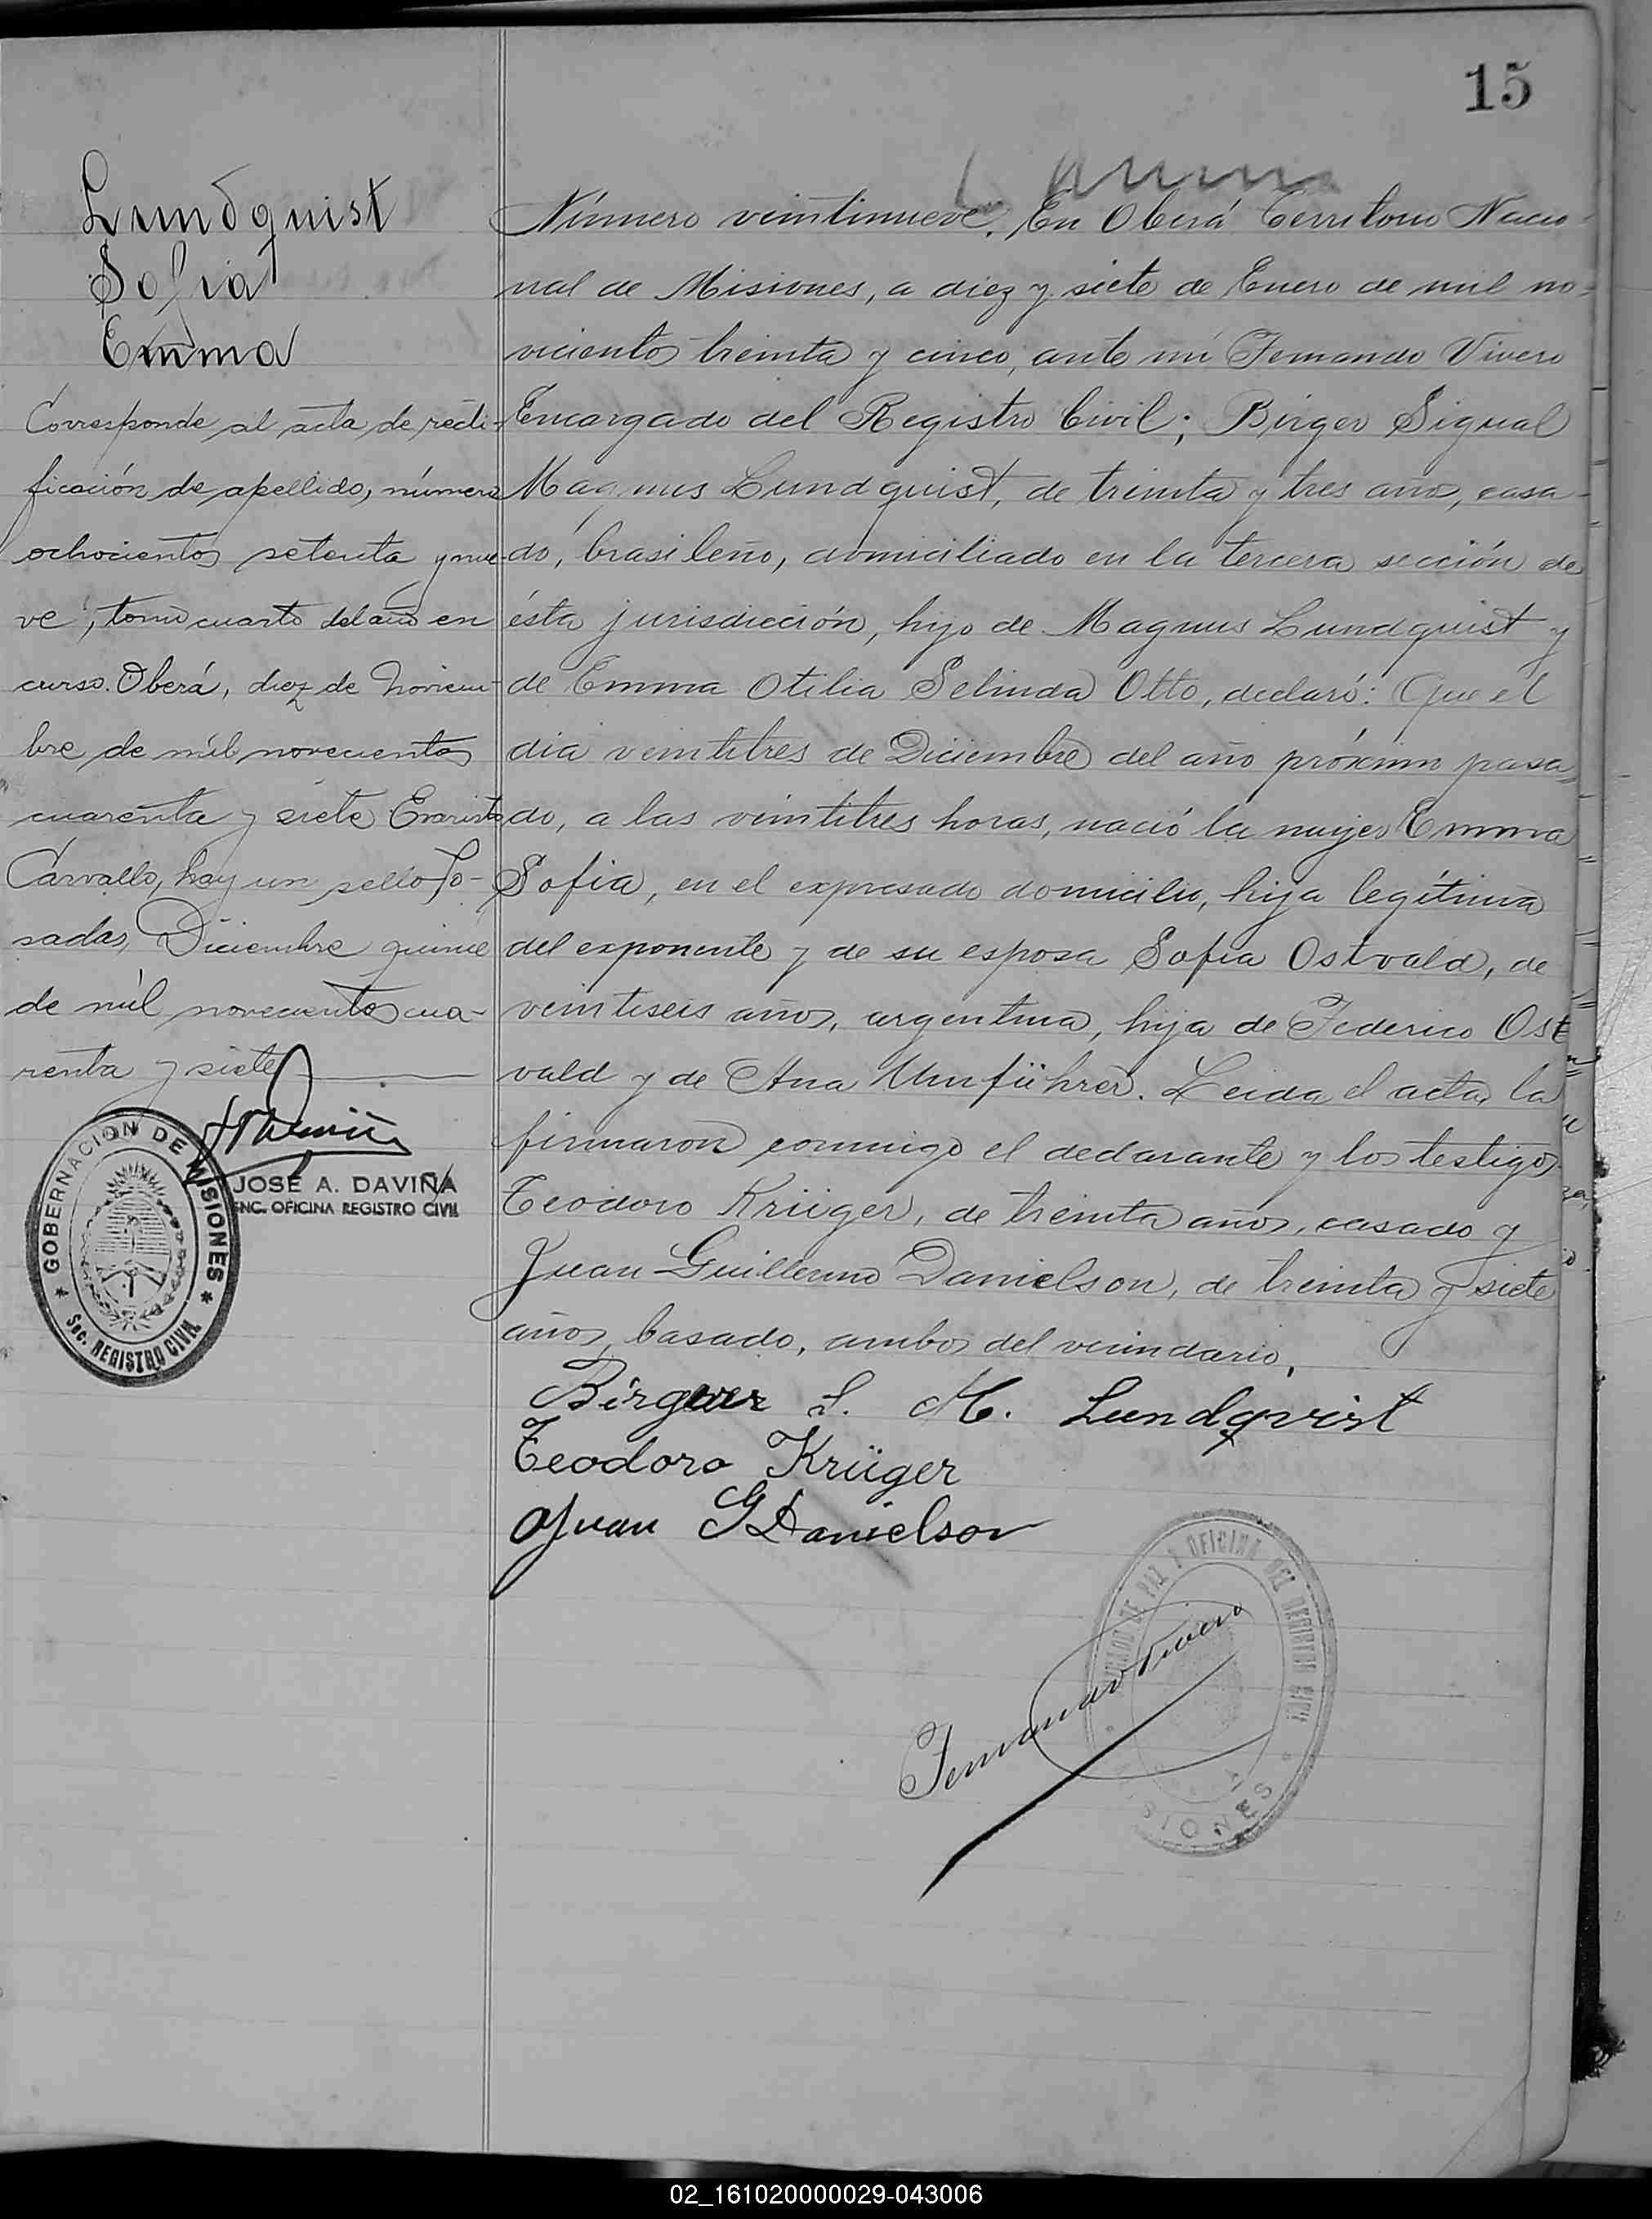 15
Lundquist
Sofia
Emma
Corresponde al acta de recti-
ficación de apellido, número
ochocientos setenta y nue-
ve, tomo cuarto del año en
curso. Oberá, diez de Noviem-
bre de mil novecientos
cuarenta y siete Evaristo
Carvallo, hay un sello Po-
sadas, Diciembre quince
de mil novecientos cua-
renta y siete
JOSÉ A. DAVIÑA
ENC. OFICINA REGISTRO CIVIL
GOBERNACION DE MISIONES
Sec. REGISTRO CIVIL
Número veintinueve. En Oberá Territorio Nacio-
nal de Misiones, a diez y siete de Enero de mil no-
vecientos treinta y cinco, ante mi Fernando Vivero
Encargado del Registro Civil; Birger Signal
Magnus Lundquist, de treinta y tres años, casa-
do, brasileño, domiciliado en la tercera sección de
ésta jurisdicción, hijo de Magnus Lundquist y
de Emma Otilia Selinda Otto, declaró: Que el
dia veintitres de Diciembre del año próximo pasa-
do, a las veintitres horas, nació la mujer Emma
Sofia, en el expresado domicilio, hija legítima
del exponente y de su esposa Sofia Ostvald, de
veintiseis años, argentina, hija de Federico Ost
vald y de Ana Umführer. Leida el acta, la
firmaron conmigo el declarante y los testigos
Teodoro Krüger, de treinta años, casado y
Juan Guillermo Danielson, de treinta y siete
años, casado, ambos del vecindario.
Birger S. M. Lundqvist
Teodoro Krüger
Juan G Danielson
Fernando Vivero
JUZGADO DE PAZ Y OFICINA DEL REGISTRO CIVIL
MISIONES
02_161020000029-043006